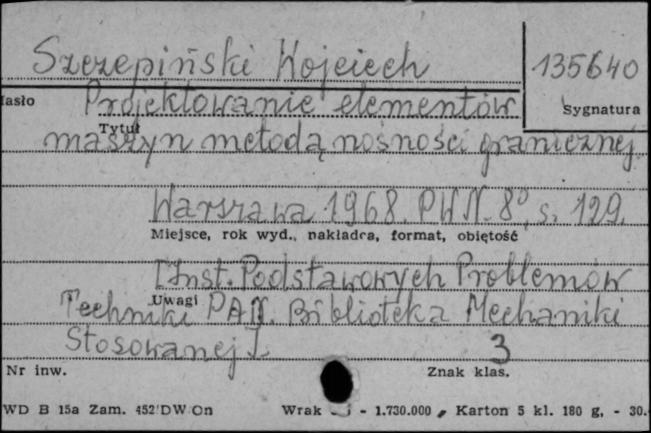 Szczepiński Wojciech 135640
Hasło Projektowanie elementów Sygnatura
Tytuł
maszyn metodą nośności granicznej
Warszawa 1968. PWN. 8°, s. 129.
Miejsce, rok wyd., nakładca, format, objętość
[Inst. Podstawowych Problemów
Uwagi
Techniki PAN. Biblioteka Mechaniki
Stosowanej]. 3
Nr inw. Znak klas.
WD B 15a Zam. 452/DW/On Wrak - 1.730.000, Karton 5 kl. 180 g, - 30.